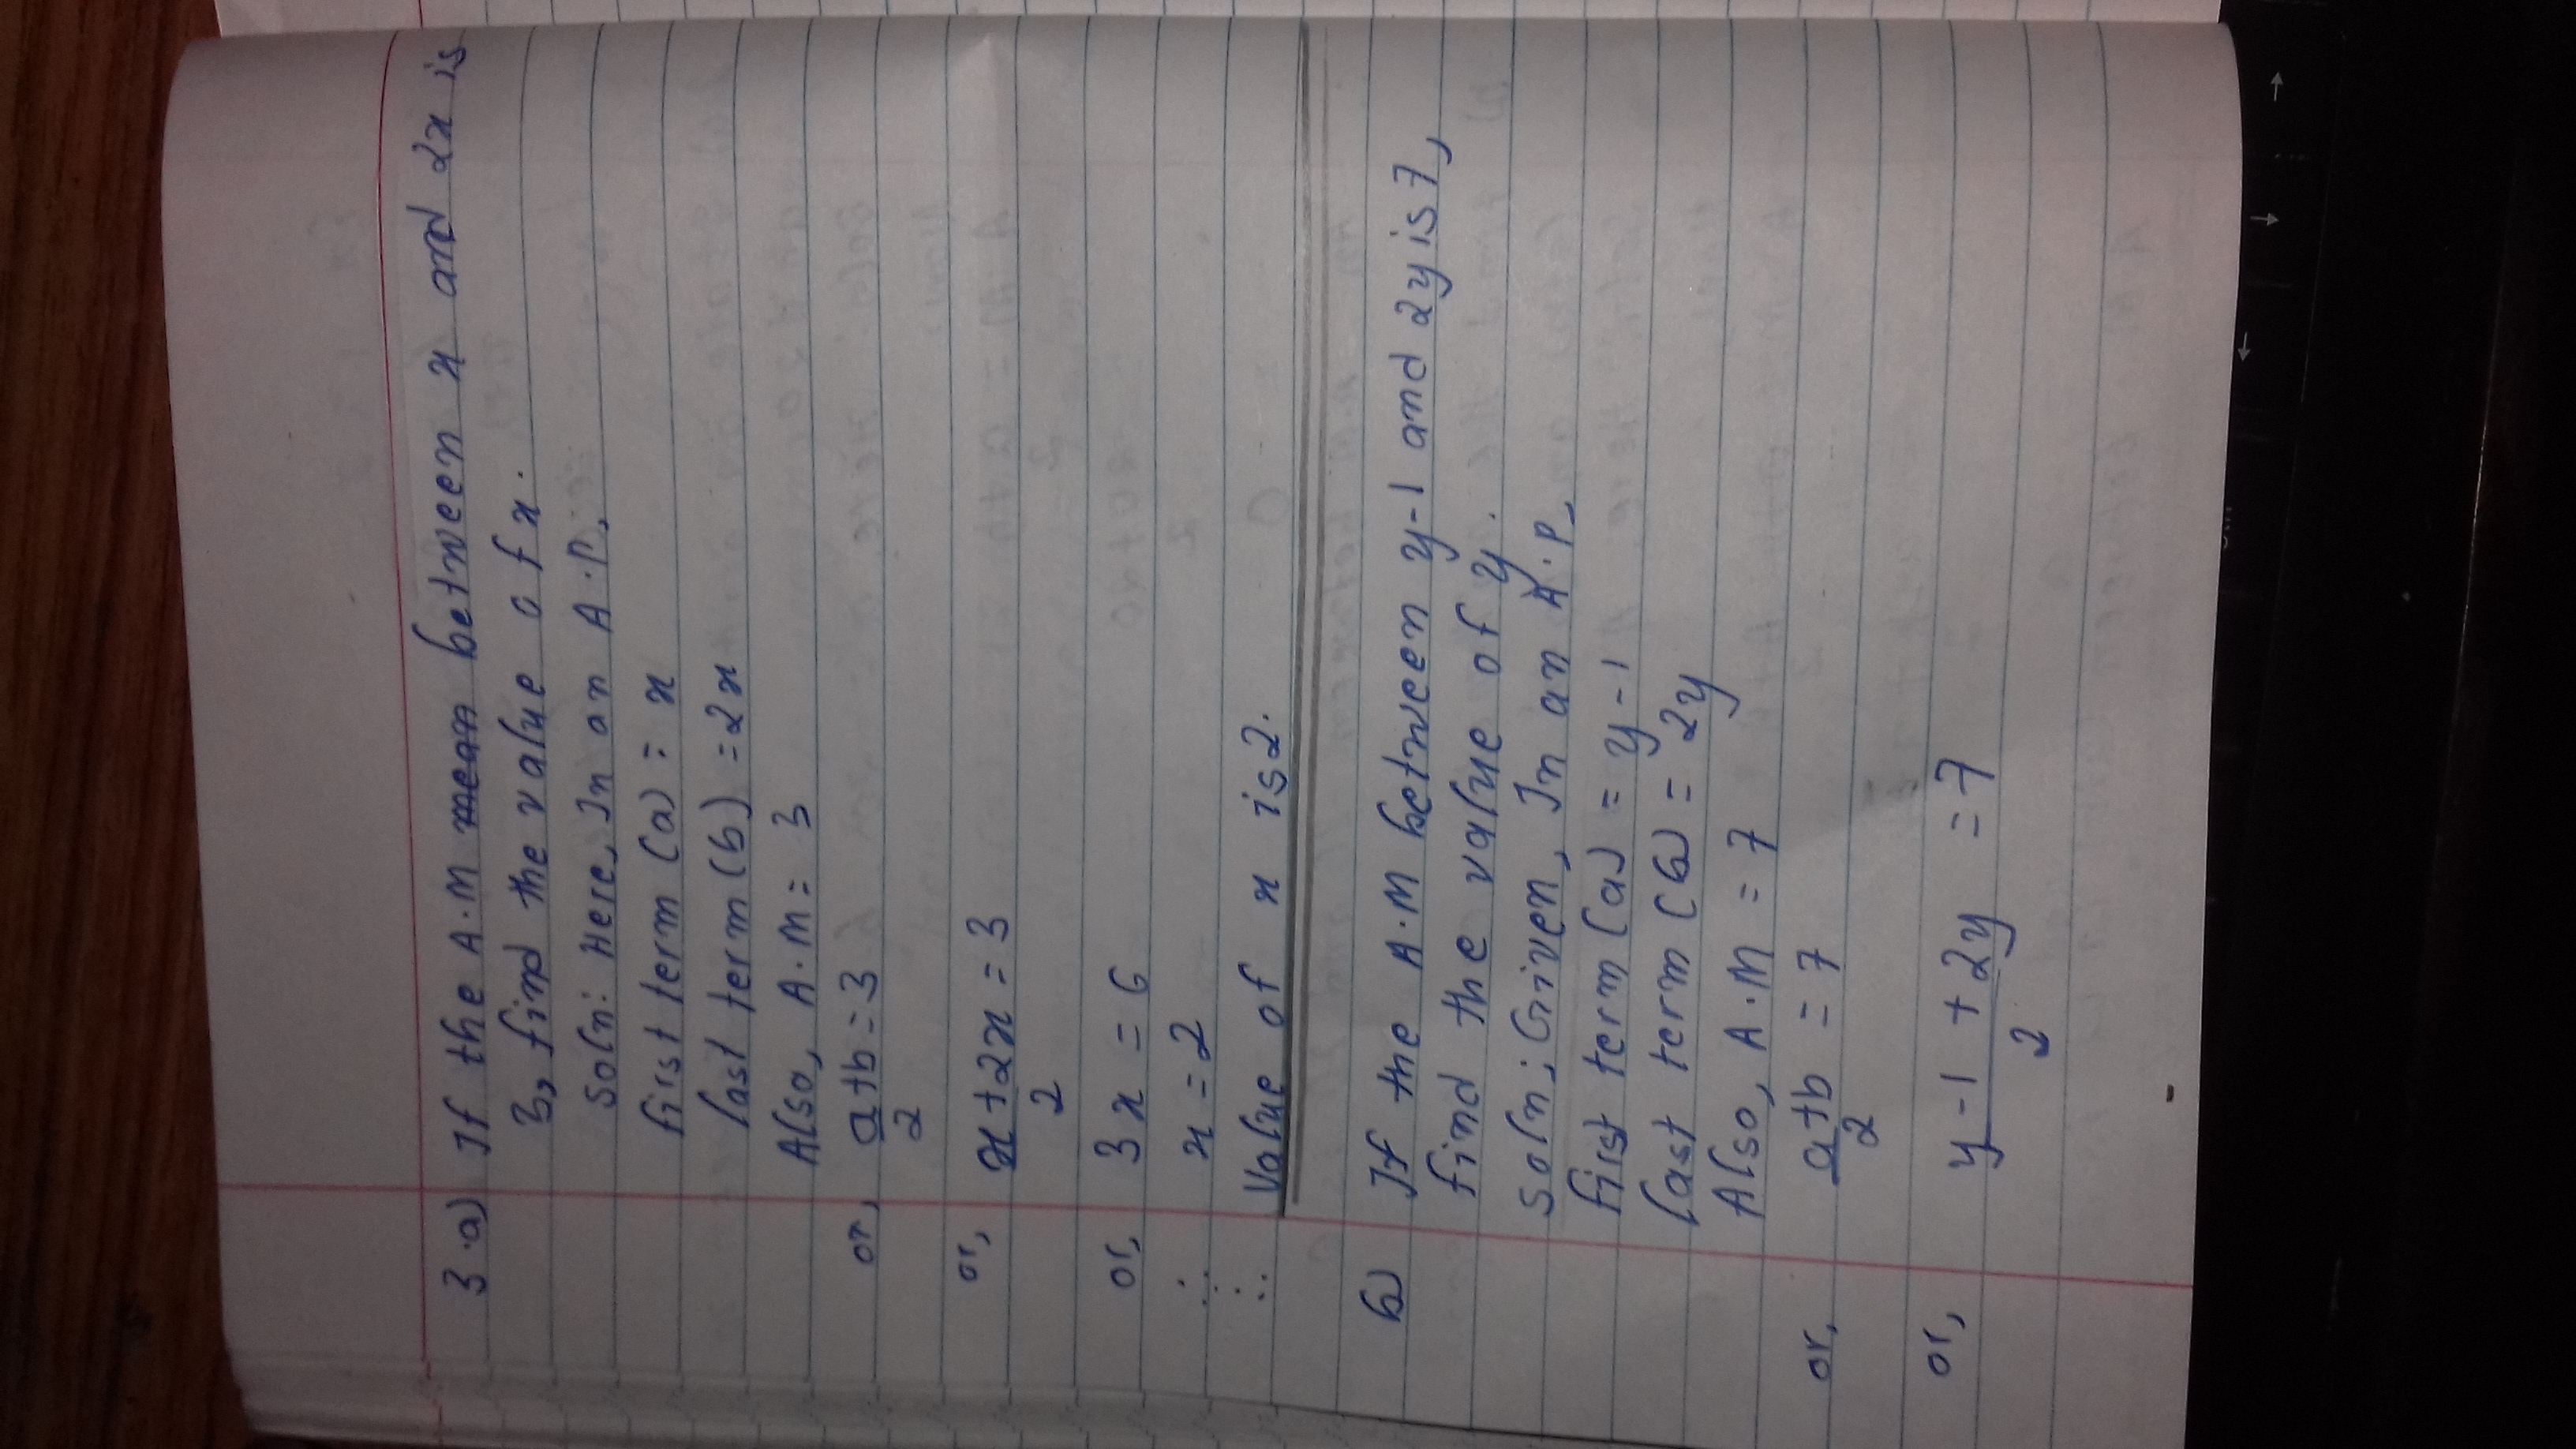 3.a) If the A.M mean between x and 2x is
3, find the value of x.
Soln: Here, In an A.P,
first term (a) = x
last term (b) = 2x
Also, A.M = 3
or, a+b = 3
2
or, x+2x = 3
2
or, 3x = 6
∴ x = 2
∴ Value of x is 2.
b) If the A.M between y-1 and 2y is 7,
find the value of y.
Soln; Given, In an A.P,
first term (a) = y-1
last term (b) = 2y
Also, A.M = 7
or, a+b = 7
2
or, y-1 + 2y = 7
2